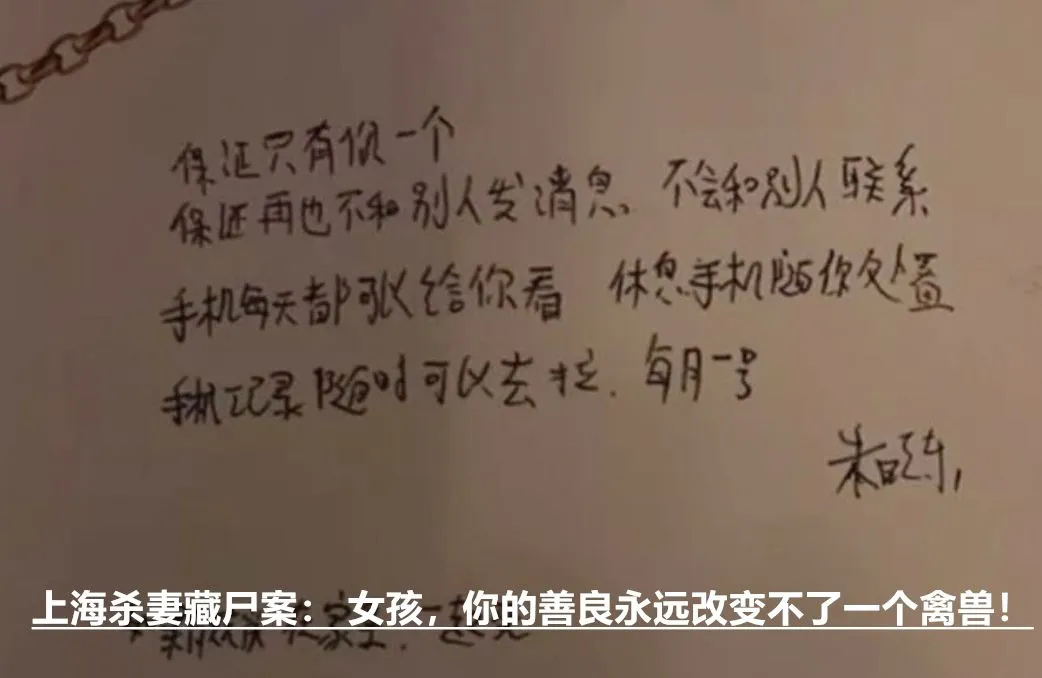 保证只有你一个
保证再也不和别人发消息 不会和别人联系
手机每天都可以给你看 休息手机随你处置
手机记录随时可以去拉. 每月一号
朱晓东
上海杀妻藏尸案： 女孩，你的善良永远改变不了一个禽兽！